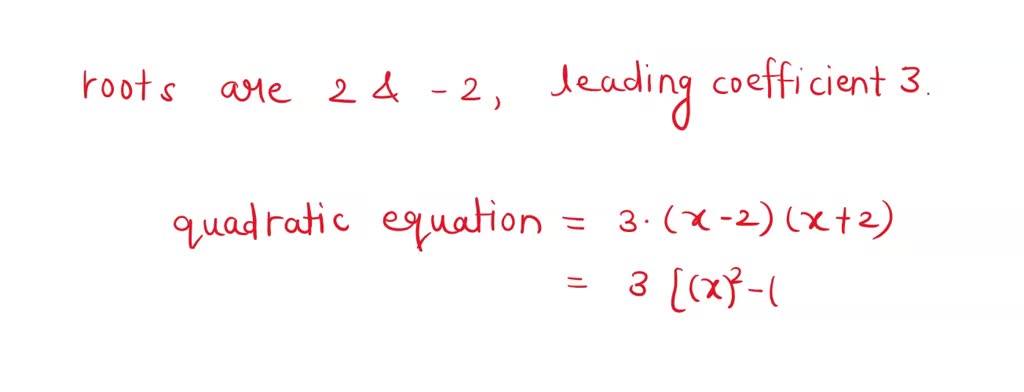 roots are 2 & -2, leading coefficient 3.
quadratic equation = 3·(x-2)(x+2)
= 3 [(x)²-(